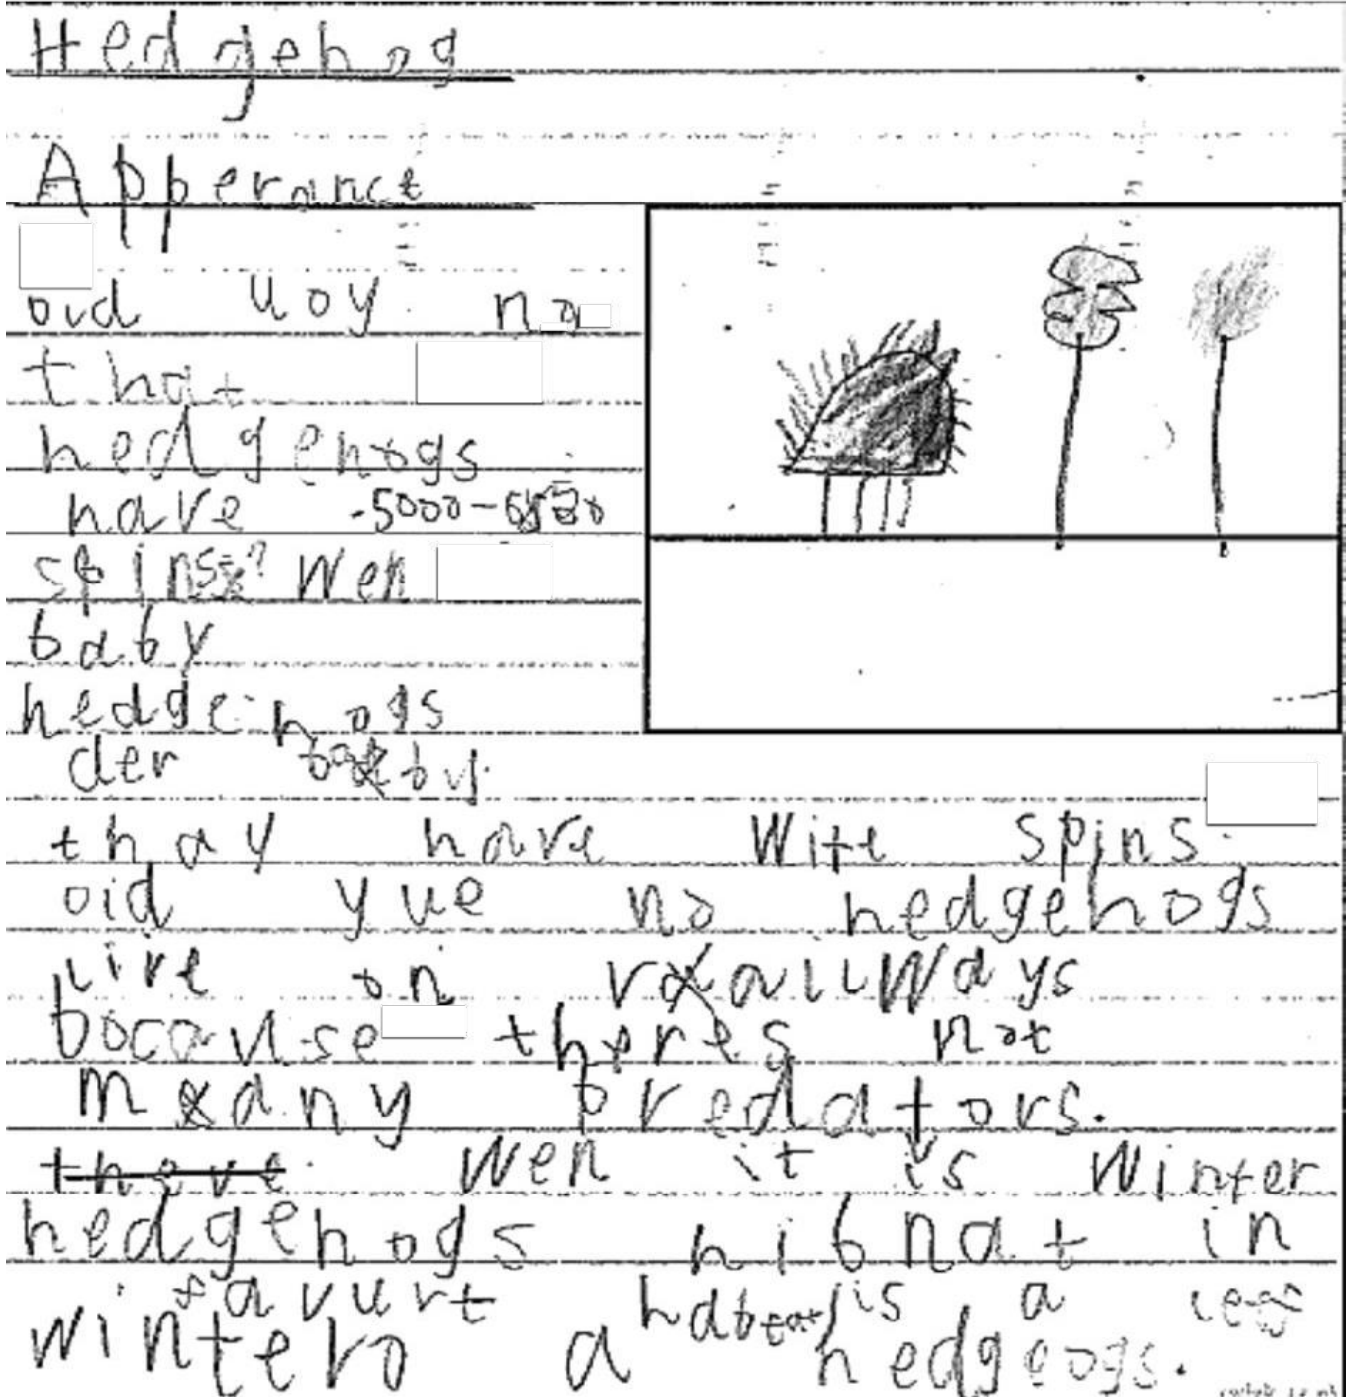 Hedgehog
Apperance
Did uoy no
that
hedgehogs
have 5000-
spins? Wen
baby
hedgehogs
der
thay have Wite spins.
Did yue no hedgehogs
live on railways
bocause theres not
many predators.
thave Wen it is Winter
hedgehogs hibnat in
favurt is a
wintero a hedgeogs.